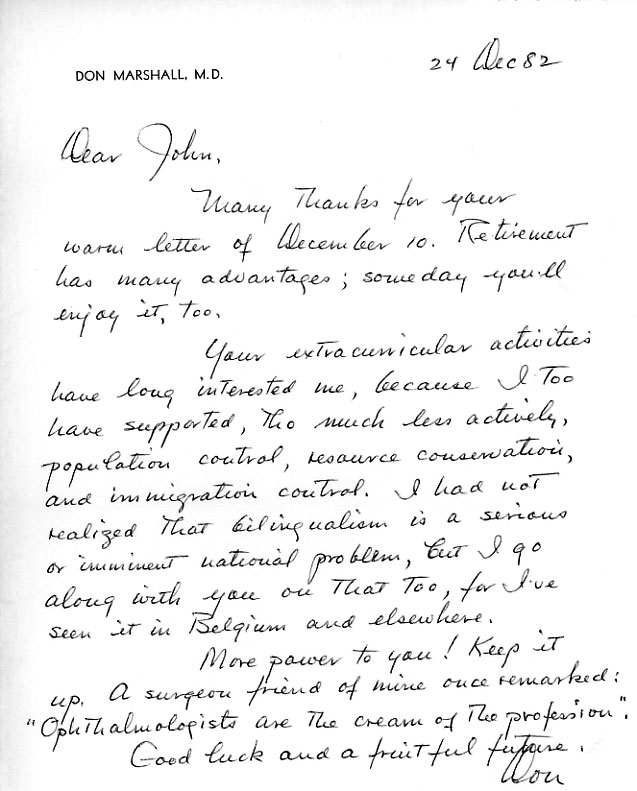 24 Dec 82
DON MARSHALL, M.D.
Dear John,
Many Thanks for your
warm letter of December 10. Retirement
has many advantages; someday you'll
enjoy it, too.
Your extracurricular activities
have long interested me, because I Too
have supported, Tho much less actively,
population control, resource conservation,
and immigration control. I had not
realized That bilingualism is a serious
or imminent national problem, but I go
along with you on That Too, for I've
seen it in Belgium and elsewhere.
More power to you! Keep it
up. A surgeon friend of mine once remarked:
"Ophthalmologists are The cream of The profession".
Good luck and a fruitful future.
Don